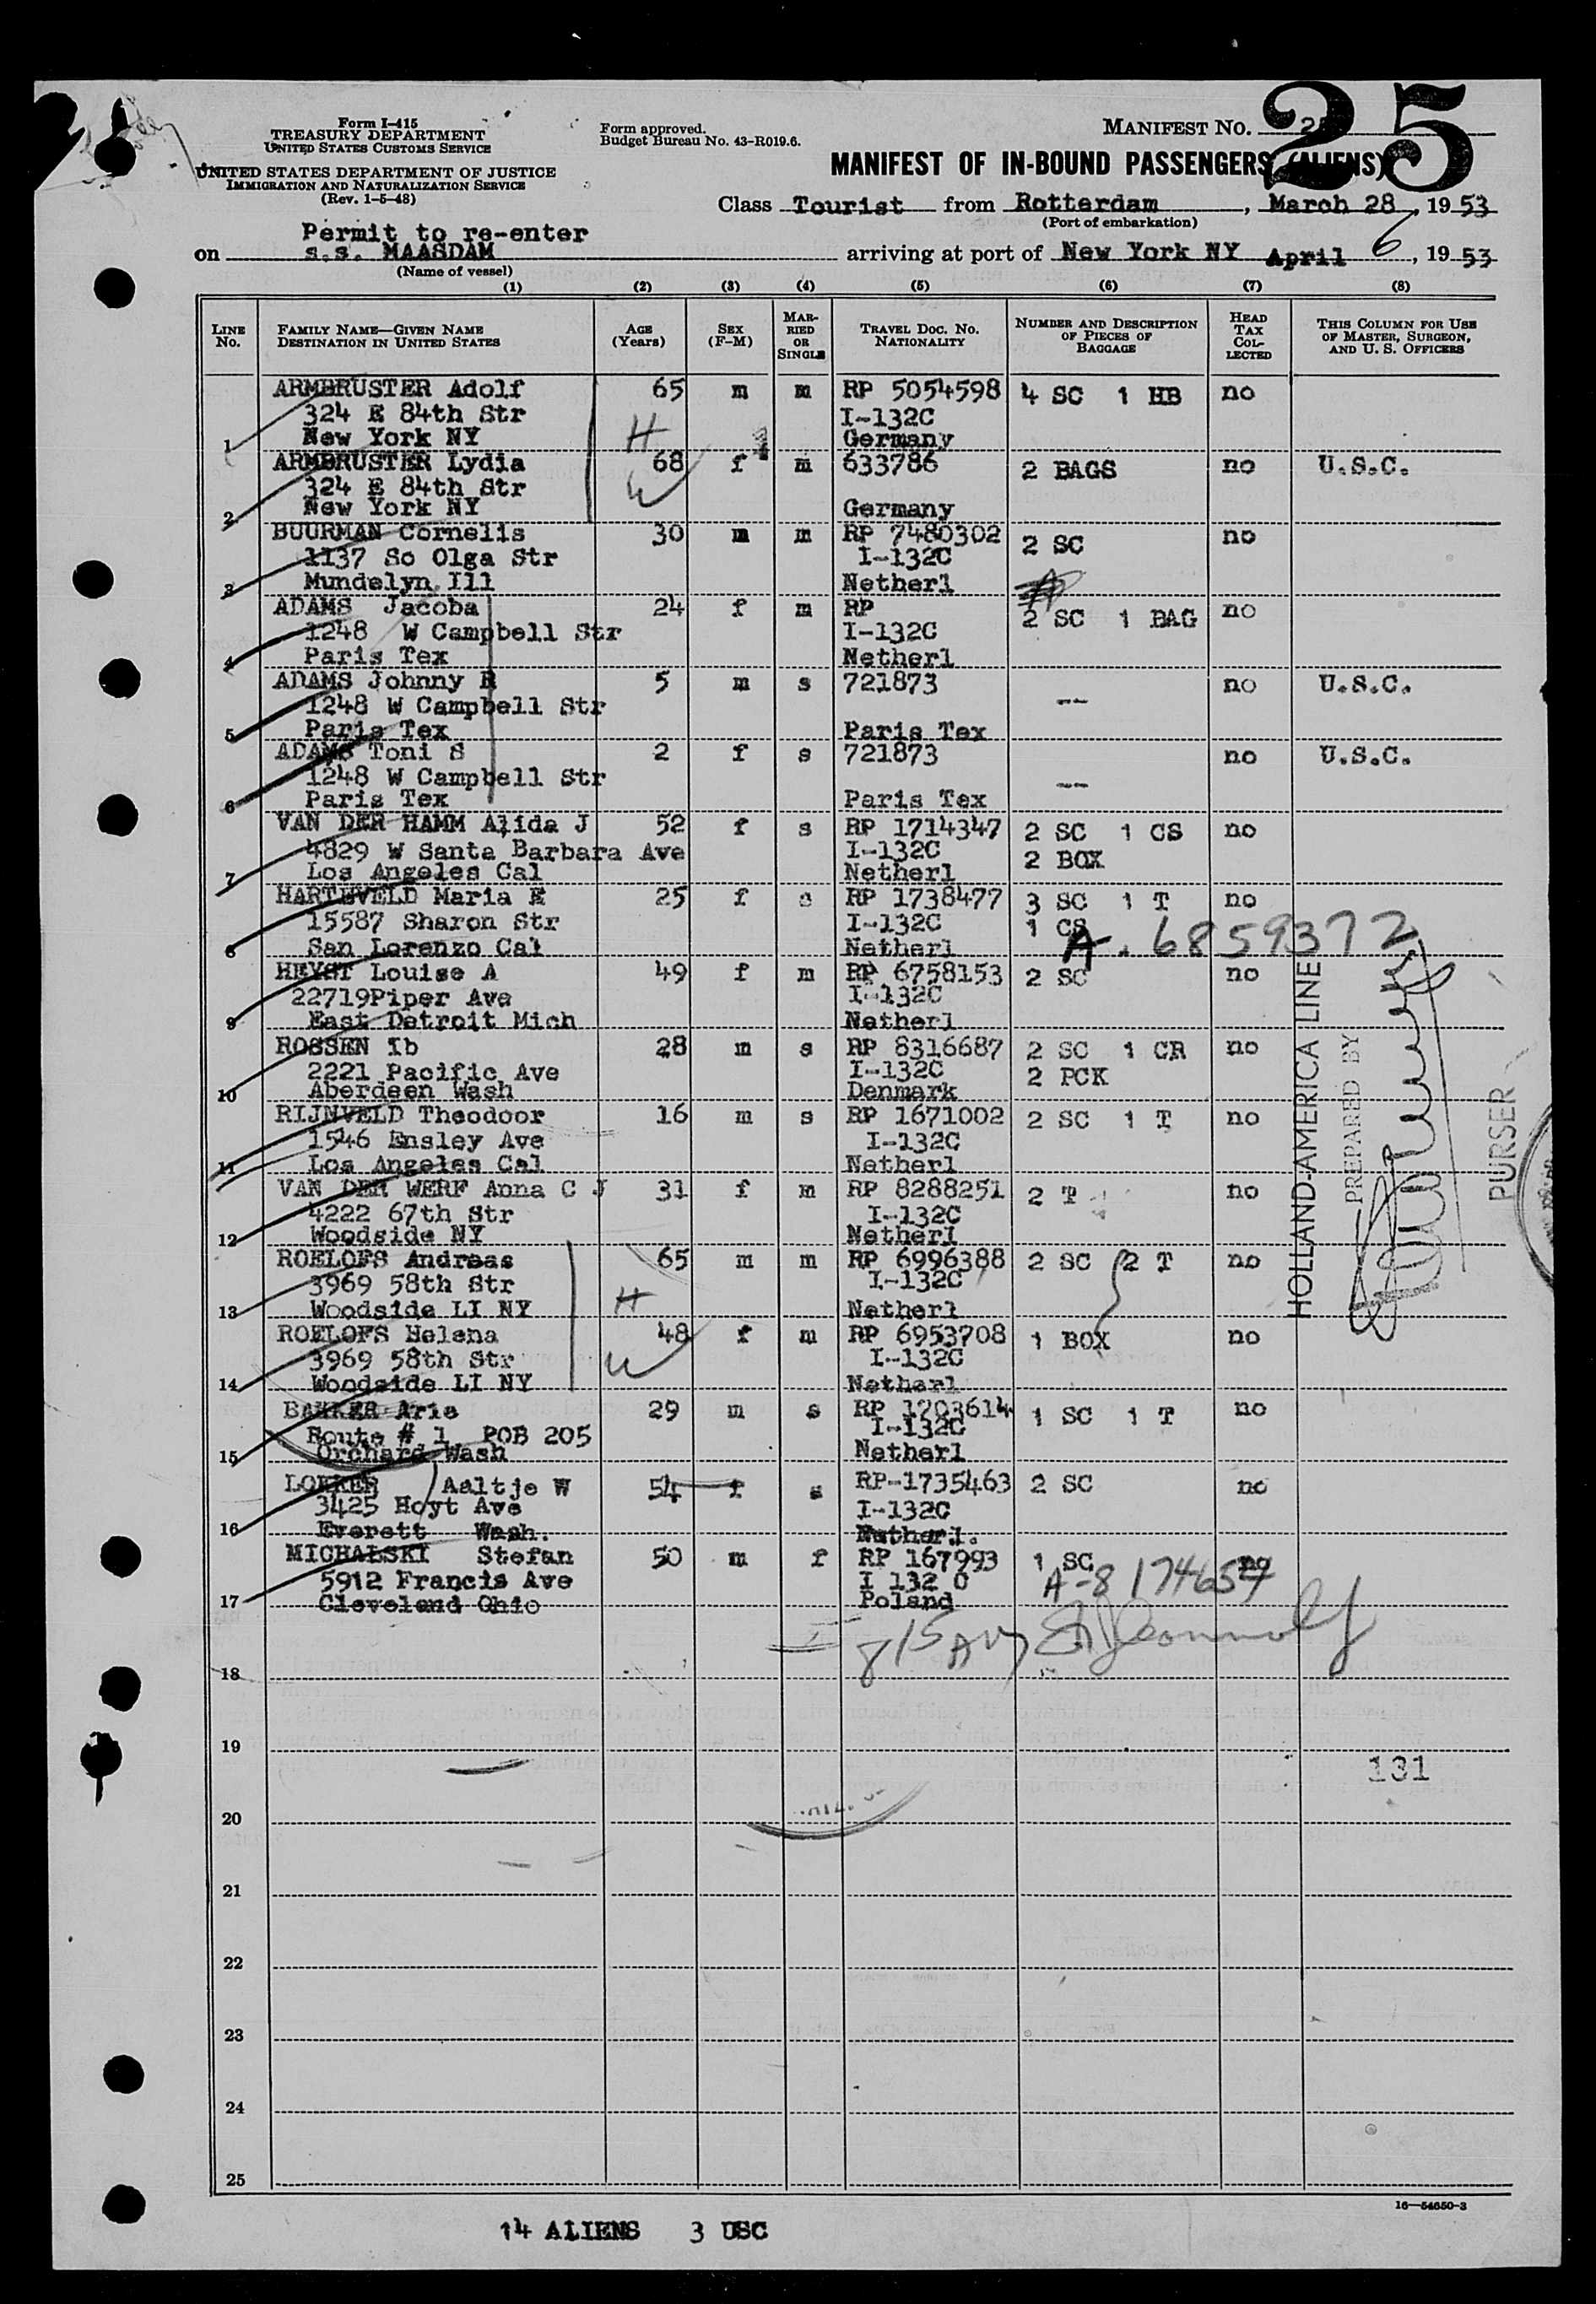 Form I-415
TREASURY DEPARTMENT
UNITED STATES CUSTOMS SERVICE
UNITED STATES DEPARTMENT OF JUSTICE
IMMIGRATION AND NATURALIZATION SERVICE
(Rev. 1-5-48)
Form approved.
Budget Bureau No. 43-R019.6.
MANIFEST NO.
25
MANIFEST OF IN-BOUND PASSENGERS (ALIENS)
Class Tourist from Rotterdam, March 28, 1953
(Port of embarkation)
Permit to re-enter
on s.s. MAASDAM arriving at port of New York NY April 6, 1953
(Name of vessel)
(1) (2) (3) (4) (5) (6) (7) (8)
LINE No. FAMILY NAME—GIVEN NAME DESTINATION IN UNITED STATES AGE (Years) SEX (F-M) MARRIED OR SINGLE TRAVEL DOC. NO. NATIONALITY NUMBER AND DESCRIPTION OF PIECES OF BAGGAGE HEAD TAX COLLECTED THIS COLUMN FOR USE OF MASTER, SURGEON, AND U. S. OFFICERS
ARMBRUSTER Adolf 65 m m RP 5054598 4 SC 1 HB no
324 E 84th Str I-132C
1 New York NY H Germany
ARMBRUSTER Lydia 68 f m 633786 2 BAGS no U.S.C.
324 E 84th Str W
2 New York NY Germany
BUURMAN Cornelis 30 m m RP 7480302 2 SC no
1137 So Olga Str I-132C
3 Mundelyn Ill Netherl
ADAMS Jacoba 24 f m RP 2 SC 1 BAG no
1248 W Campbell Str I-132C
4 Paris Tex Netherl
ADAMS Johnny R 5 m s 721873 -- no U.S.C.
1248 W Campbell Str
5 Paris Tex Paris Tex
ADAMS Toni S 2 f s 721873 -- no U.S.C.
1248 W Campbell Str
6 Paris Tex Paris Tex
VAN DER HAMM Alida J 52 f s RP 1714347 2 SC 1 CS no
4829 W Santa Barbara Ave I-132C 2 BOX
7 Los Angeles Cal Netherl
HARTEVELD Maria E 25 f s RP 1738477 3 SC 1 T no
15587 Sharon Str I-132C 1 CS
8 San Lorenzo Cal Netherl A. 6859372
HEYST Louise A 49 f m RP 6758153 2 SC no
22719Piper Ave I-132C
9 East Detroit Mich Netherl
ROSSEN Ib 28 m s RP 8316687 2 SC 1 CR no
2221 Pacific Ave I-132C 2 PCK
10 Aberdeen Wash Denmark
RIJNVELD Theodoor 16 m s RP 1671002 2 SC 1 T no
1546 Ensley Ave I-132C
11 Los Angeles Cal Netherl
VAN DER WERF Anna C J 31 f m RP 8288251 2 T no
4222 67th Str I-132C
12 Woodside NY Netherl
ROELOFS Andreas 65 m m RP 6996388 2 SC 2 T no
3969 58th Str I-132C
13 Woodside LI NY H Netherl
ROELOFS Helena 48 f m RP 6953708 1 BOX no
3969 58th Str W I-132C
14 Woodside LI NY Netherl
BAKKER Arie 29 m s RP 1703614 1 SC 1 T no
Route # 1 POB 205 I-132C
15 Orchard Wash Netherl
LOKKER Aaltje W 54 f s RP-1735463 2 SC no
3425 Hoyt Ave I-132C
16 Everett Wash. Netherl.
MICHALSKI Stefan 50 m f RP 167993 1 SC no
5912 Francis Ave I 132 C A-8 174657
17 Cleveland Ohio Poland
HOLLAND-AMERICA LINE
PREPARED BY
PURSER
18
19
131
20
21
22
23
24
25
16—54650-3
14 ALIENS 3 USC